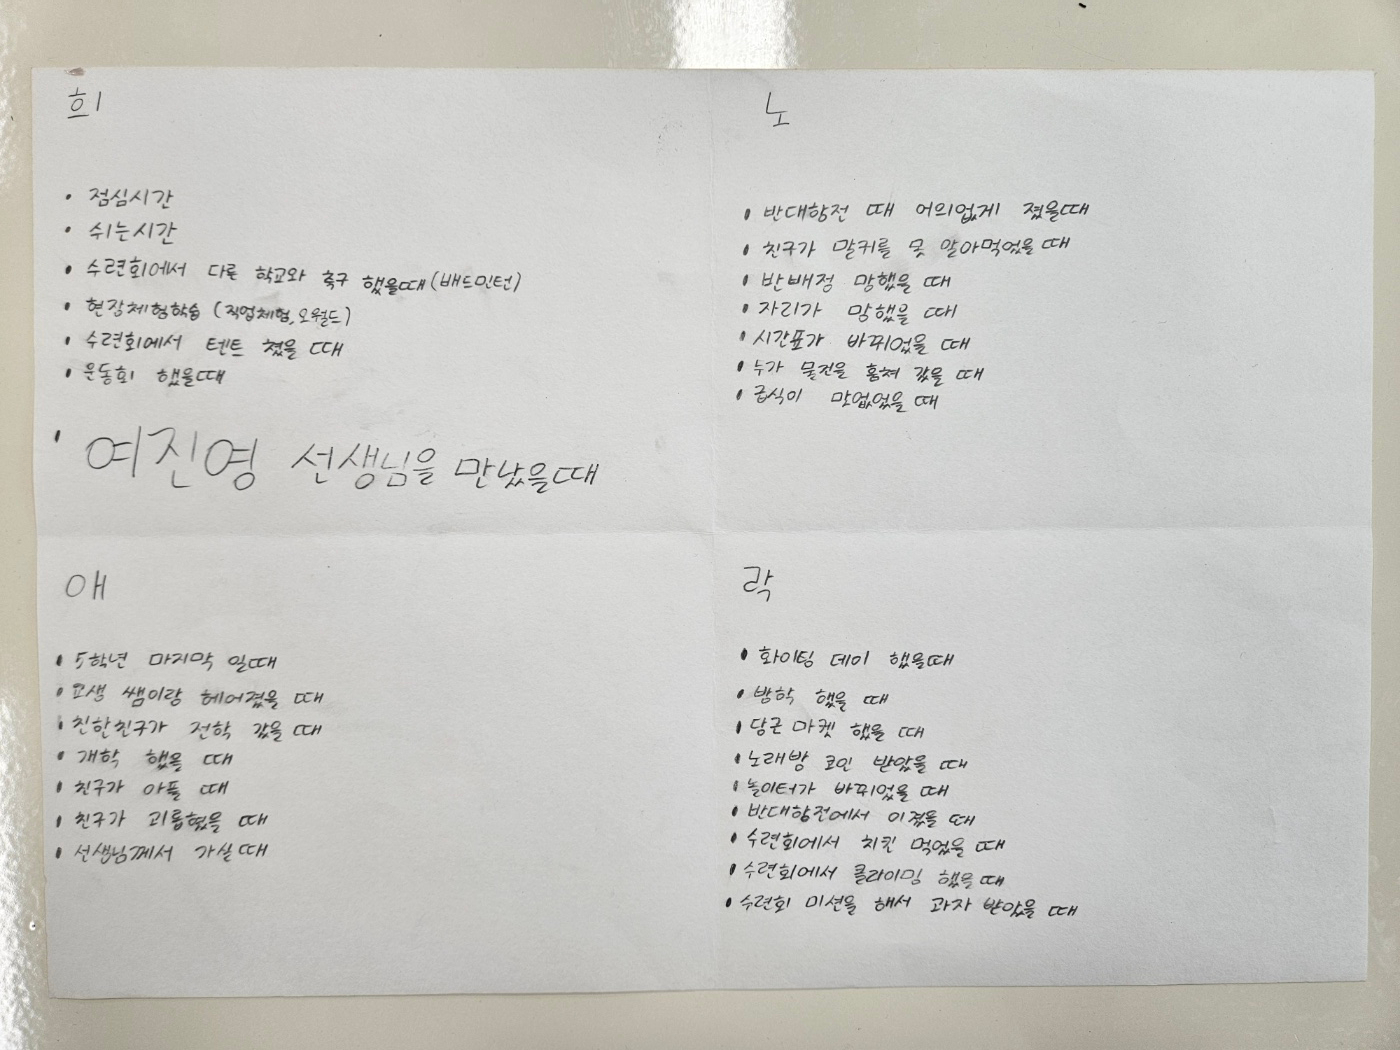 희
• 점심시간
• 쉬는시간
• 수련회에서 다른 학교와 축구 했을때(배드민턴)
• 현장체험학습 (직업체험, 오월드)
• 수련회에서 텐트 쳤을 때
• 운동회 했을때
• 여진영 선생님을 만났을때
노
• 반대항전 때 어의없게 졌을때
• 친구가 말귀를 못 알아먹었을 때
• 반배정 망했을 때
• 자리가 망했을 때
• 시간표가 바뀌었을 때
• 누가 물건을 훔쳐 갔을 때
• 급식이 맛없었을 때
애
• 5학년 마지막 일때
• 쌤이랑 헤어졌을 때
• 친한친구가 전학 갔을 때
• 개학 했을 때
• 친구가 아플 때
• 친구가 괴롭혔을 때
• 선생님께서 가실때
락
• 화이팅 데이 했을때
• 방학 했을 때
• 당근 마켓 했을 때
• 노래방 코인 받았을 때
• 놀이터가 바뀌었을 때
• 반대항전에서 이겼을 때
• 수련회에서 치킨 먹었을 때
• 수련회에서 클라이밍 했을 때
• 수련회 미션을 해서 과자 받았을 때